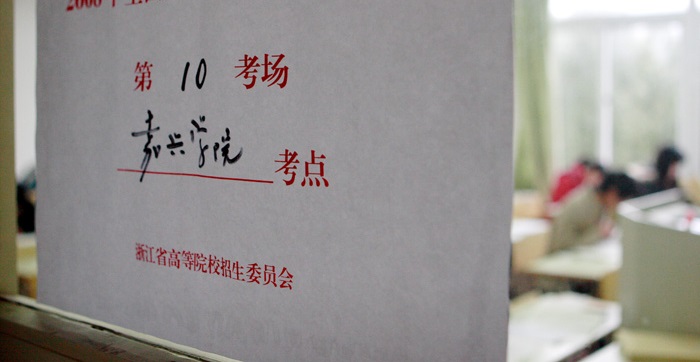 第 10 考场
嘉兴学院 考点
浙江省高等院校招生委员会